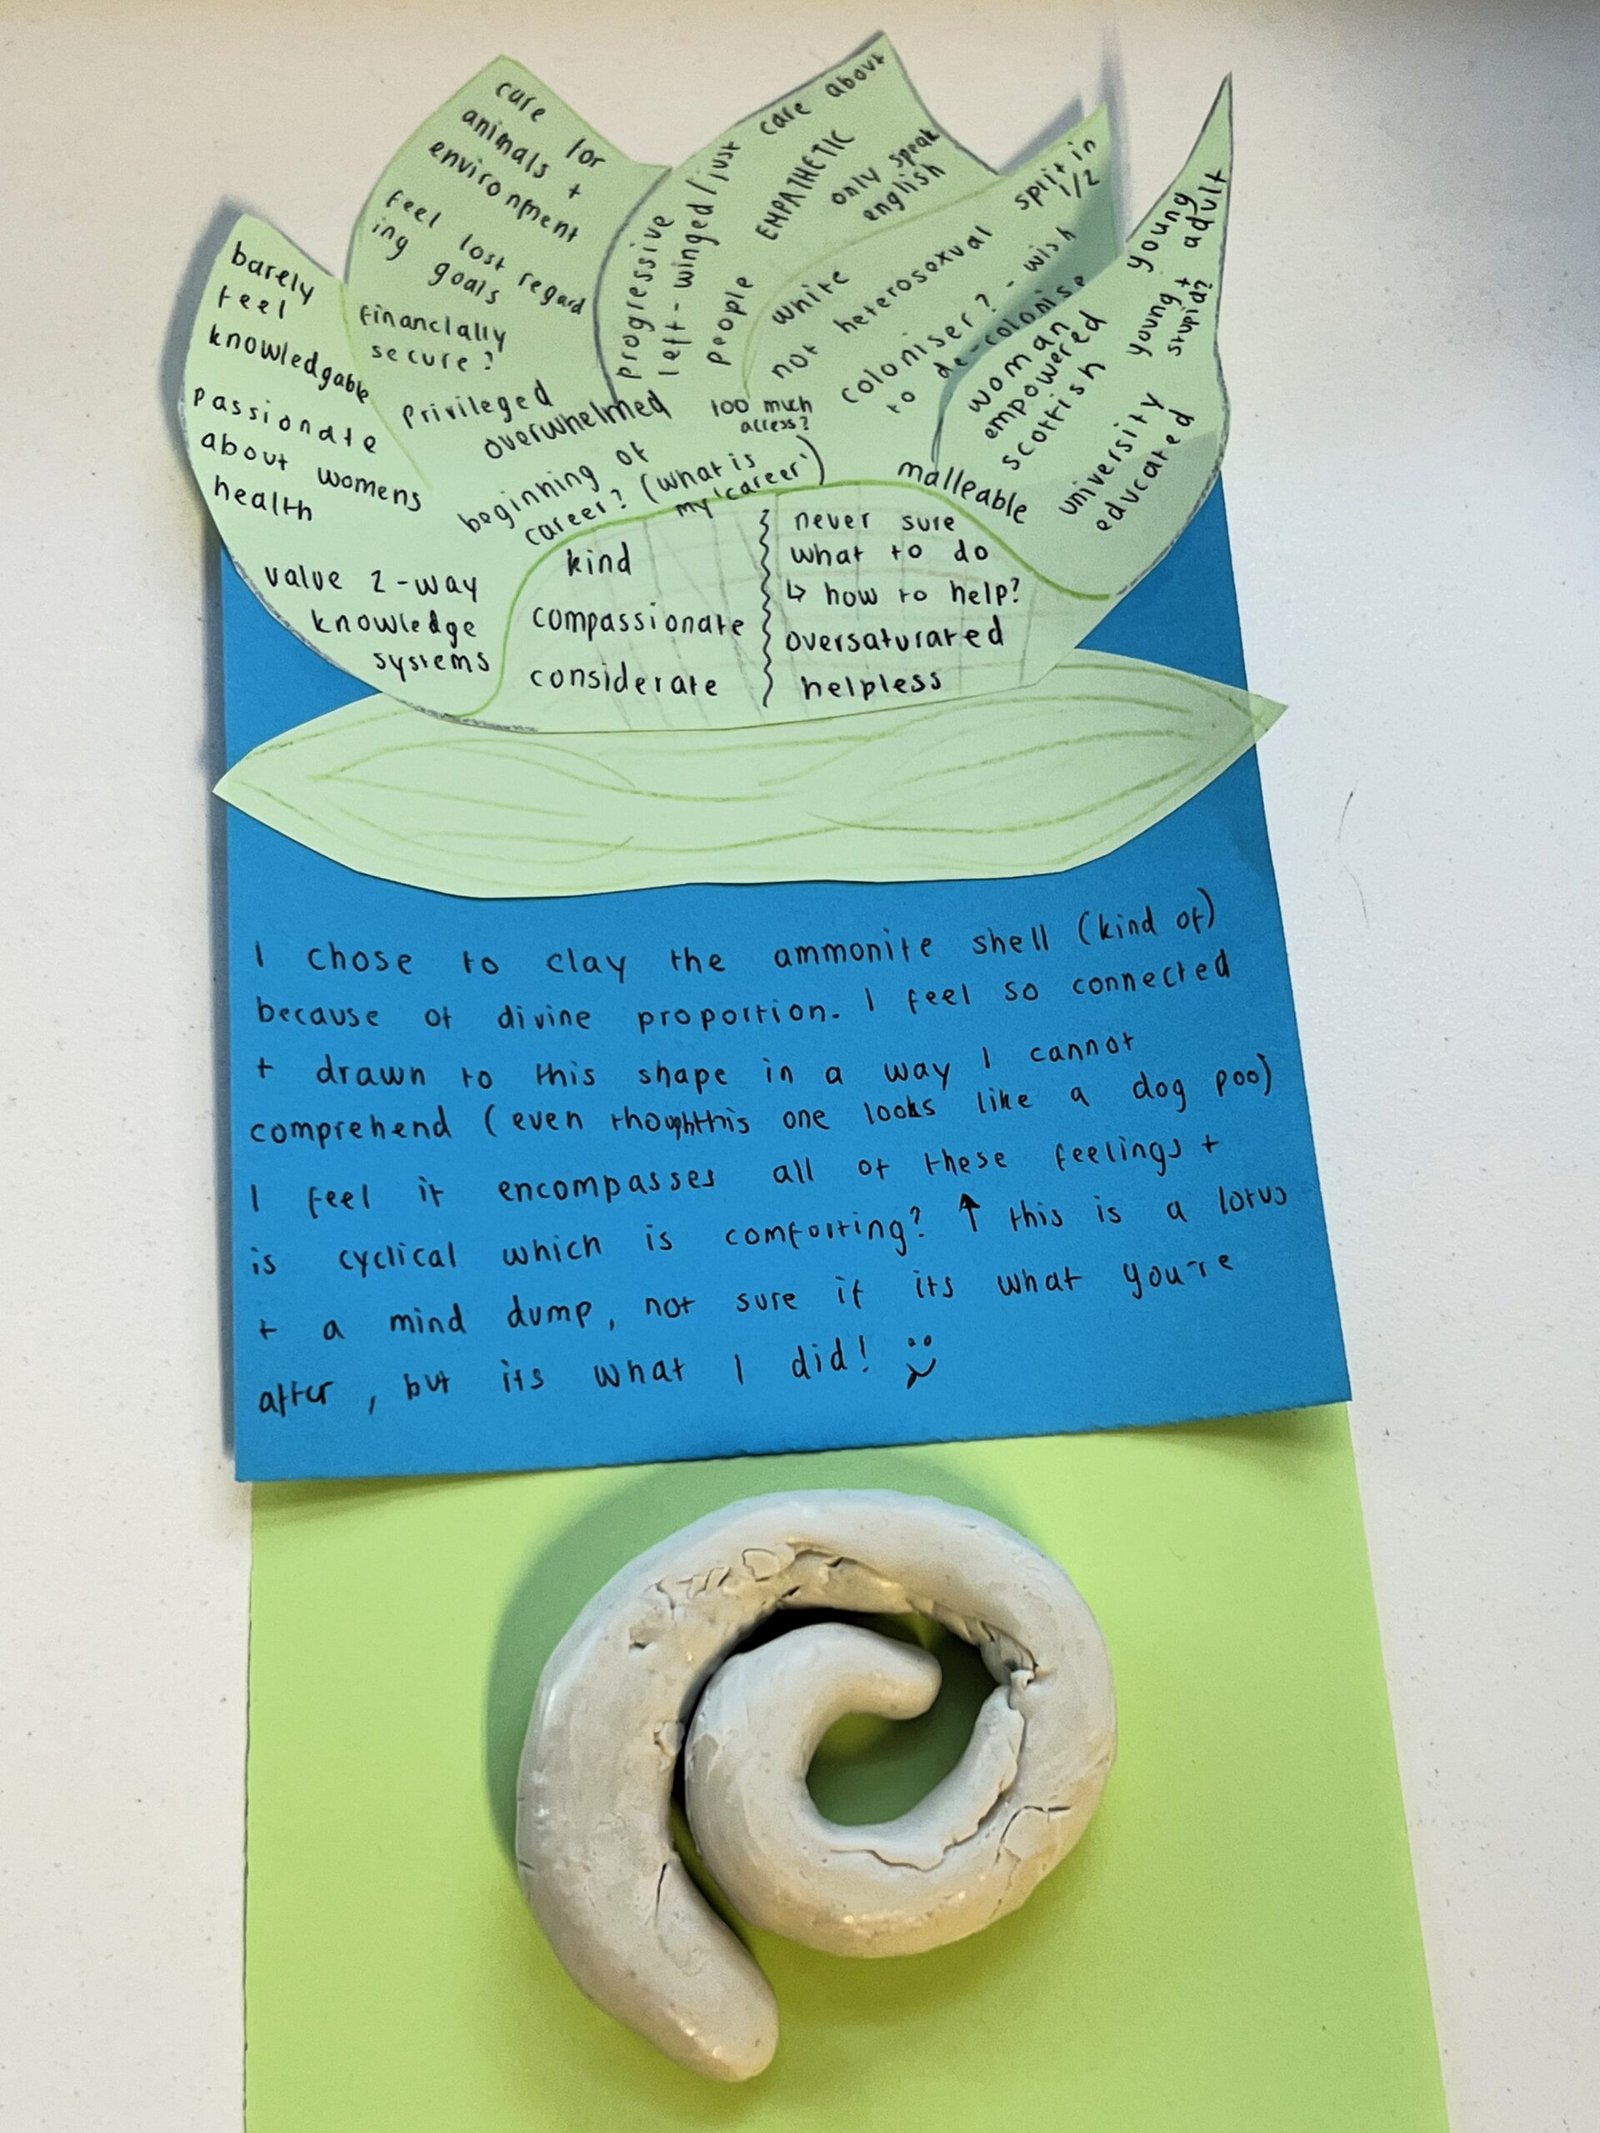 barely
feel
knowledgable
passionate
about womens
health
value 2-way
knowledge
systems
care for
animals +
environment
feel lost regard
ing goals
financially
secure?
privileged
overwhelmed
beginning of
career? (what is
my 'career')
progressive
left-winged/just care about
people
EMPATHETIC
only speak
english
too much
access?
white
not heterosexual
coloniser? - wish
to de-colonise
split in
1/2
malleable
woman
empowered
scottish
young adult
young +
stupid?
university
educated
kind
compassionate
considerate
never sure
what to do
↳ how to help?
oversaturated
helpless
I chose to clay the ammonite shell (kind of)
because of divine proportion. I feel so connected
+ drawn to this shape in a way I cannot
comprehend (even though this one looks like a dog poo)
I feel it encompasses all of these feelings +
is cyclical which is comforting? ↑ this is a lotus
+ a mind dump, not sure if its what you're
after, but its what I did!